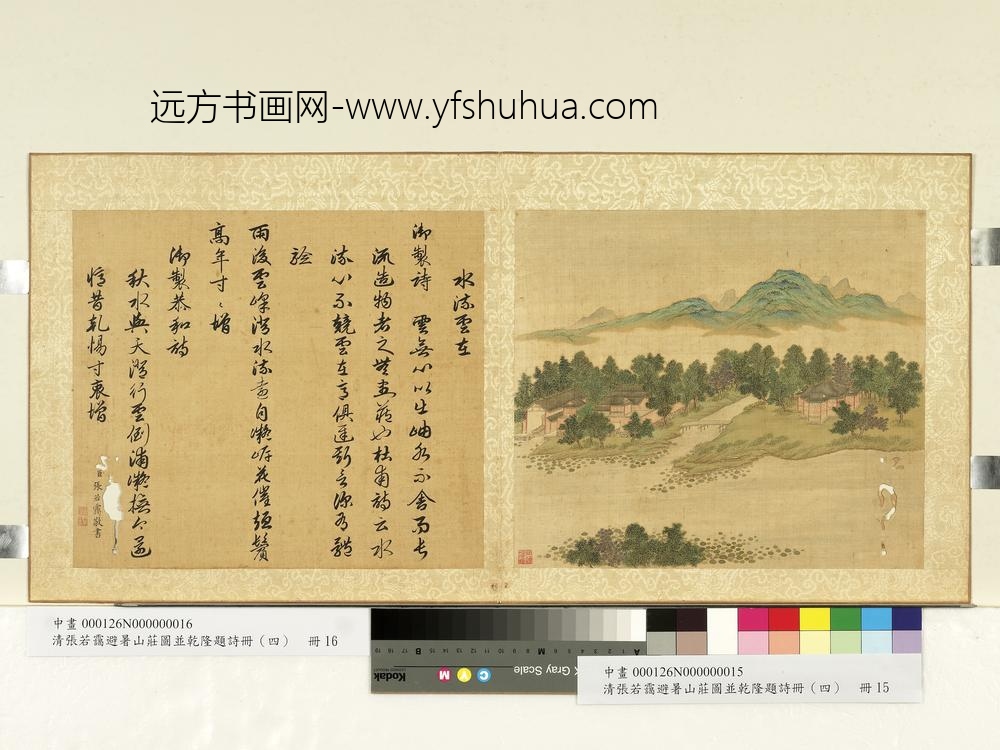 远方书画网-www.yfshuhua.com
水流雲在
御製詩 雲無心以出岫水不舍而長
流造物者之無盡藏也杜甫詩云水
流心不競雲在意俱遲斯言深有體
驗
雨後雲峰澄水流遠自凝岸花催短鬢
高年寸〻增
御製恭和詩
秋水與天澄行雲倒浦凝撫今還
憶昔乾惕寸衷增
臣張若靄敬書
中畫 000126N000000016
清張若靄避暑山莊圖並乾隆題詩冊（四） 冊 16
Kodak
Gray Scale
C Y M
A 1 2 3 4 5 6 M 8 9 10 11 12 13 14 15 B 17 18 19
中畫 000126N000000015
清張若靄避暑山莊圖並乾隆題詩冊（四） 冊 15